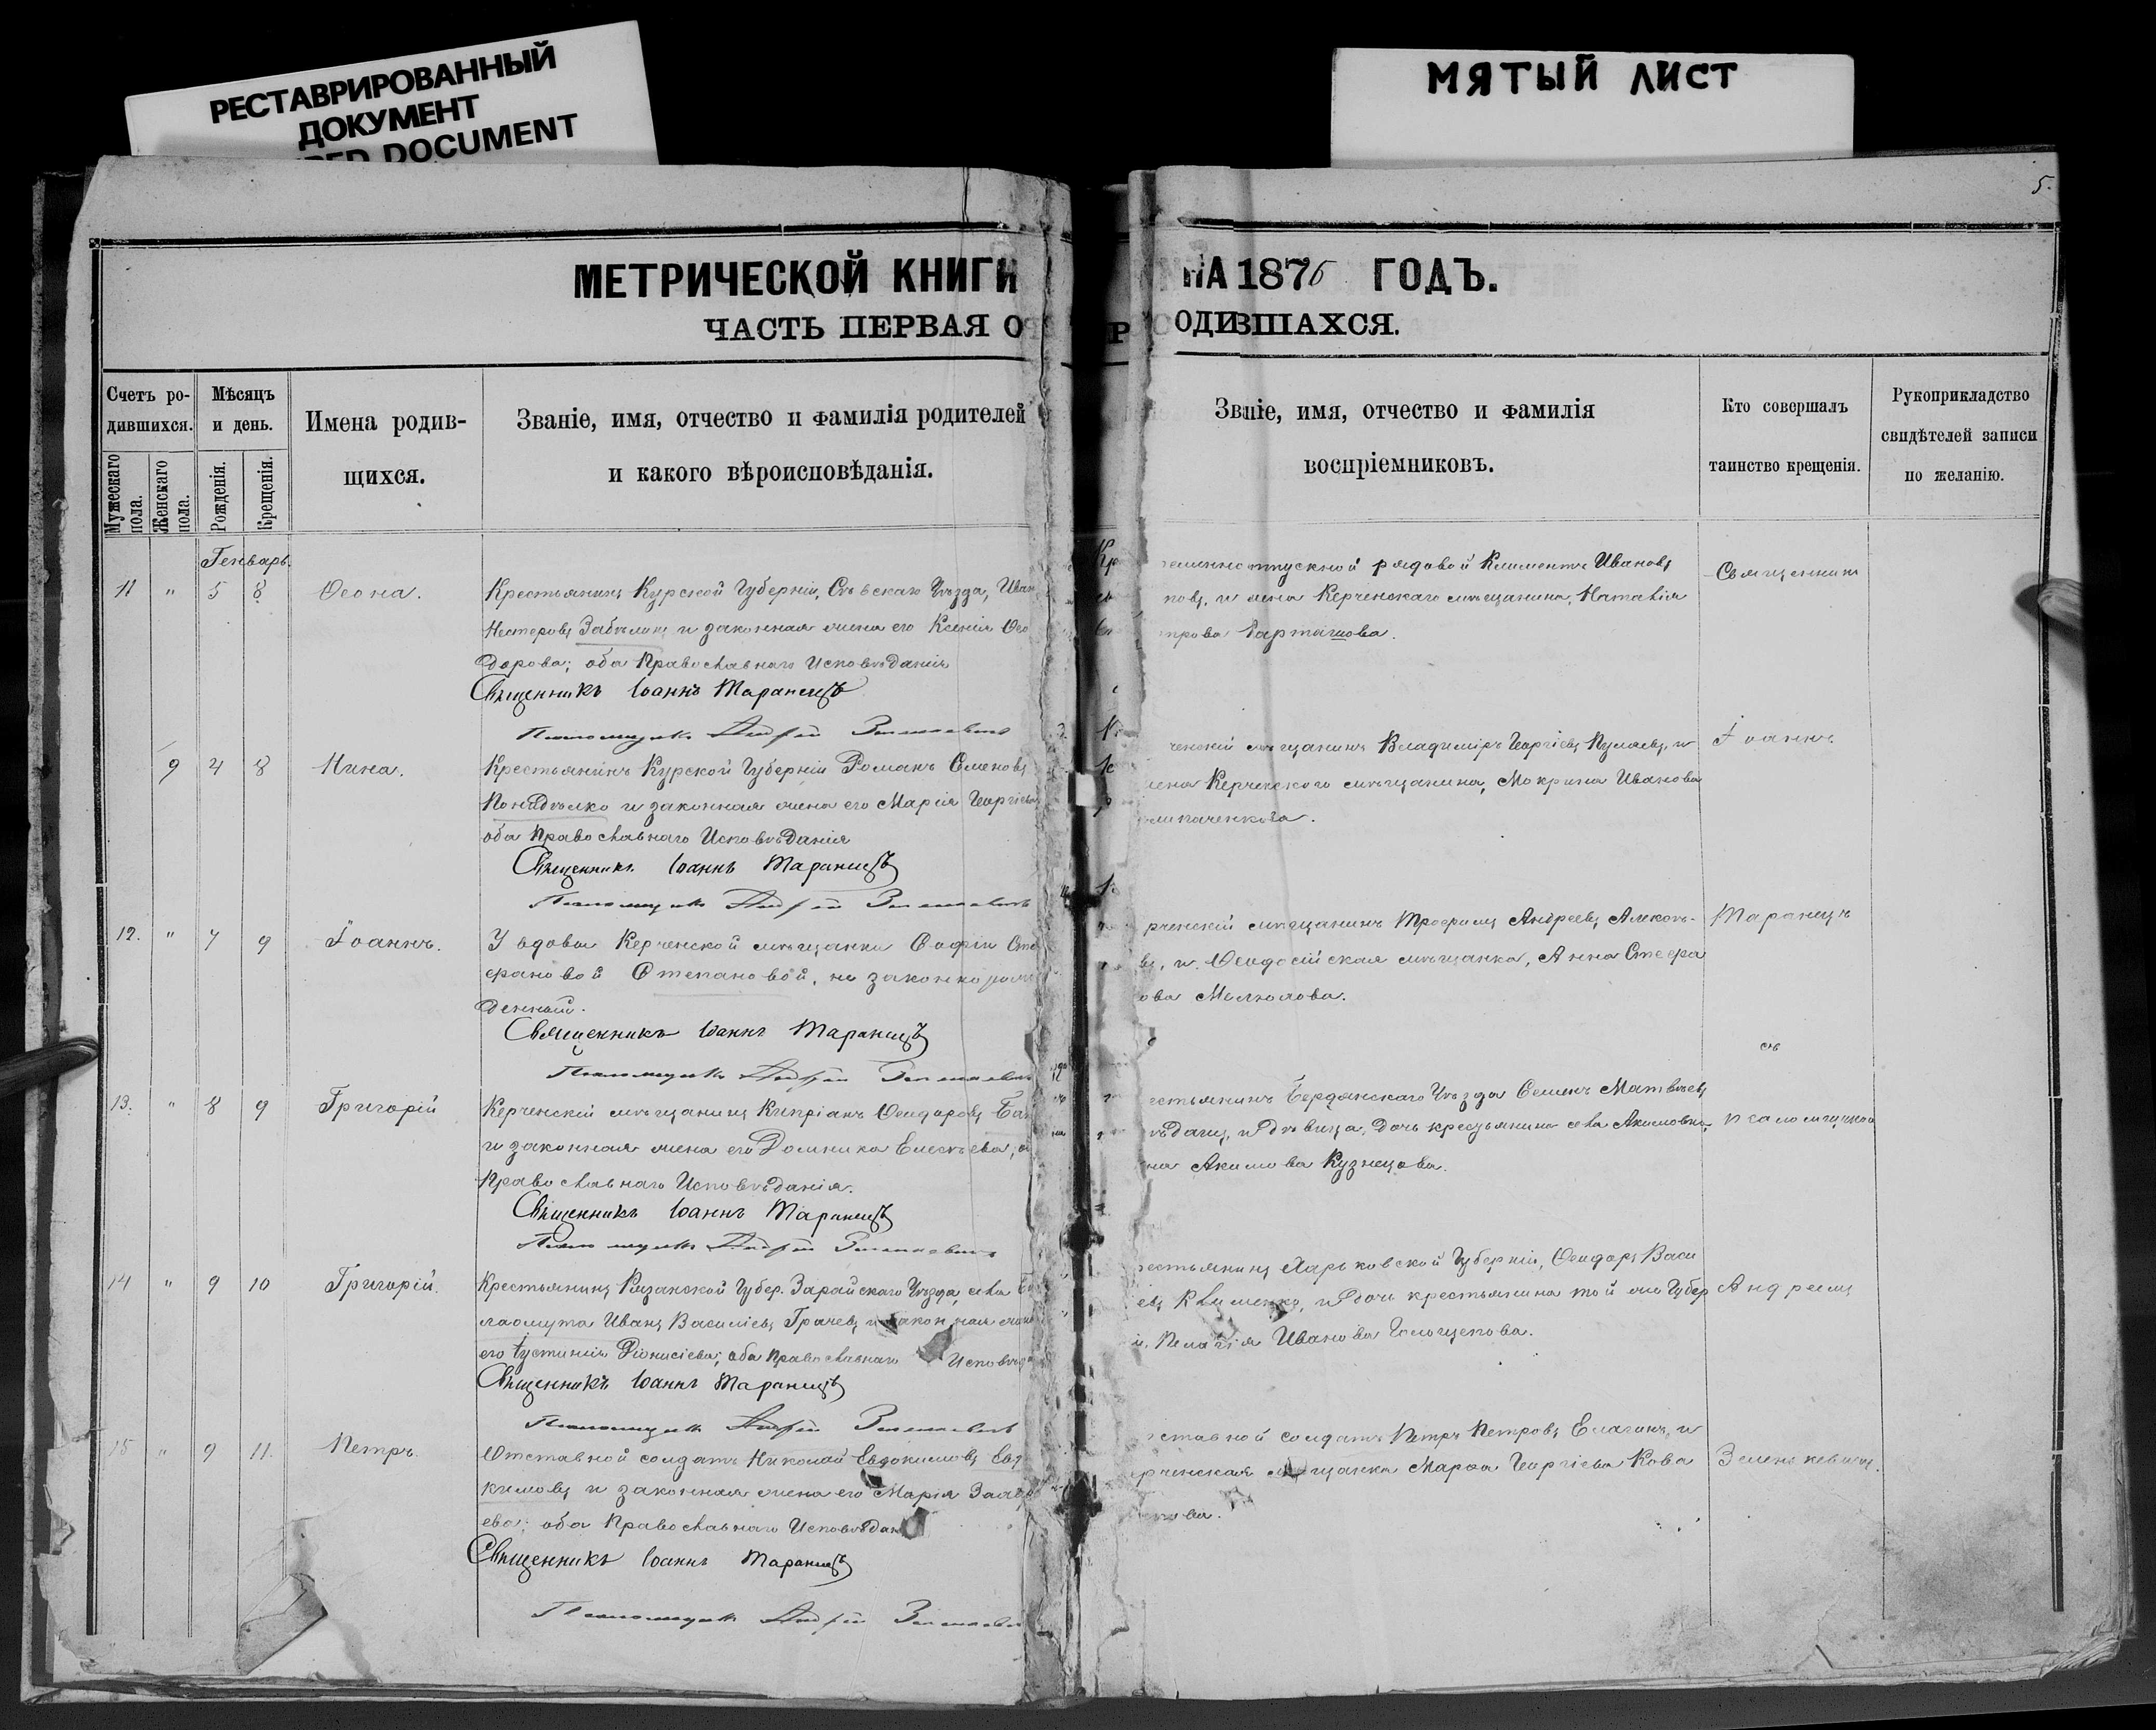 РЕСТАВРИРОВАННЫЙ
ДОКУМЕНТ
DOCUMENT
МЯТЫЙ ЛИСТ
5.
МЕТРИЧЕСКОЙ КНИГИ
НА 1876 ГОДЪ.
ЧАСТЬ ПЕРВАЯ О
РОДИВШАХСЯ.
Счетъ ро-
дившихся.
Мужескаго пола.
Женскаго пола.
Мѣсяцъ
и день.
Рожденія.
Крещенія.
Имена родив-
щихся.
Званіе, имя, отчество и фамилія родителей
и какого вѣроисповѣданія.
Званіе, имя, отчество и фамилія
воспріемниковъ.
Кто совершалъ
таинство крещенія.
Рукоприкладство
свидѣтелей записи
по желанію.
Генварь.
11 " 5 8 Ѳеона.
Крестьянинъ Курской Губерніи, Уѣзда, Иван
Нестеровъ и законная жена его Ксенія Ѳео
дорова; оба Православнаго Исповѣданія
Священникъ Іоаннъ Таранецъ
Псаломщикъ Андрей Зеленкевичъ
рядовой Климентъ Ивановъ
и жена Керченскаго мѣщанина, Наталія
Священникъ
9 4 8 Нина.
Крестьянинъ Курской Губерніи Романъ Семеновъ
и законная жена его Марія Георгіева
оба Православнаго Исповѣданія
Священникъ Іоаннъ Таранецъ
Псаломщикъ Андрей Зеленкевичъ
ченскій мѣщанинъ Владиміръ Георгіевъ и
жена Керченского мѣщанина, Мокрина Иванова
Іоаннъ
12. " 7 9 Іоаннъ.
У вдовы Керченской мѣщанки Софіи Сте
фановой Степановой, не законнорож
денный.
Священникъ Іоаннъ Таранецъ
Псаломщикъ Андрей Зеленкевичъ
рченскій мѣщанинъ Трофимъ Андреевъ
въ, и Ѳеодосійская мѣщанка, Анна Стефа
ова
Таранецъ
съ
13. " 8 9 Григорій
Керченскій мѣщанинъ Кипріанъ Ѳеодоровъ
и законная жена его Домника Елисѣева,
Православнаго Исповѣданія.
Священникъ Іоаннъ Таранецъ
Псаломщикъ Андрей Зеленкевичъ
естьянинъ Бердянскаго Уѣзда Семенъ Матвѣевъ
и дѣвица, дочь крестьянина села Акимовки,
на Акимова Кузнецова.
псаломщикомъ
14 " 9 10 Григорій.
Крестьянинъ Рязанской Губер. Зарайскаго Уѣзда, села
Иванъ Василіевъ Грачевъ и законная жена
его Іустинія Діонисіева; оба Православнаго Исповѣда
Священникъ Іоаннъ Таранецъ
Псаломщикъ Андрей Зеленкевичъ
рестьянинъ Харьковской Губерніи, Ѳеодоръ Васи
евъ Клименко, и дочь крестьянина той же Губер
Пелагія Иванова
Андреемъ
15 " 9 11. Петръ.
Отставной солдатъ Николай Евдокимовъ Евд
кимовъ и законная жена его Марія
ева; оба Православнаго Исповѣдан
Священникъ Іоаннъ Таранецъ
Псаломщикъ Андрей Зеленкевичъ
ставной солдатъ Петръ Петровъ Елагинъ, и
рченская мѣщанка Марѳа Георгіева Кова
Зеленкевичемъ.